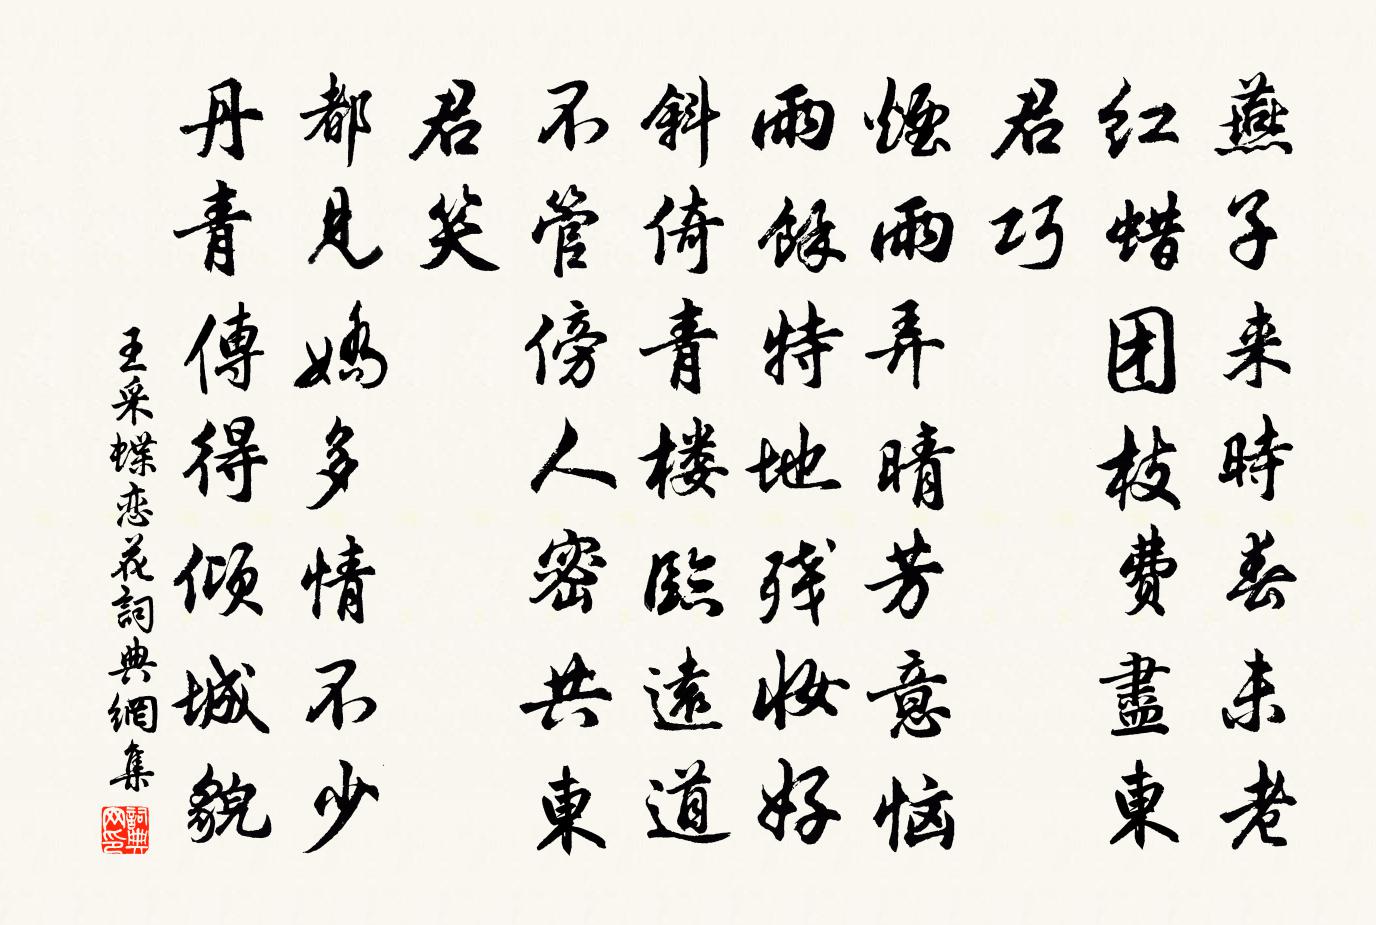 燕子来時春未老
红蜡团枝費盡東
君巧
煙雨弄晴芳意恼
雨餘特地残妆好
斜倚青楼臨遠道
不管傍人密共東
君笑
都見嬌多情不少
丹青傳得傾城貌
王采蝶恋花詞典網集
詞典网印